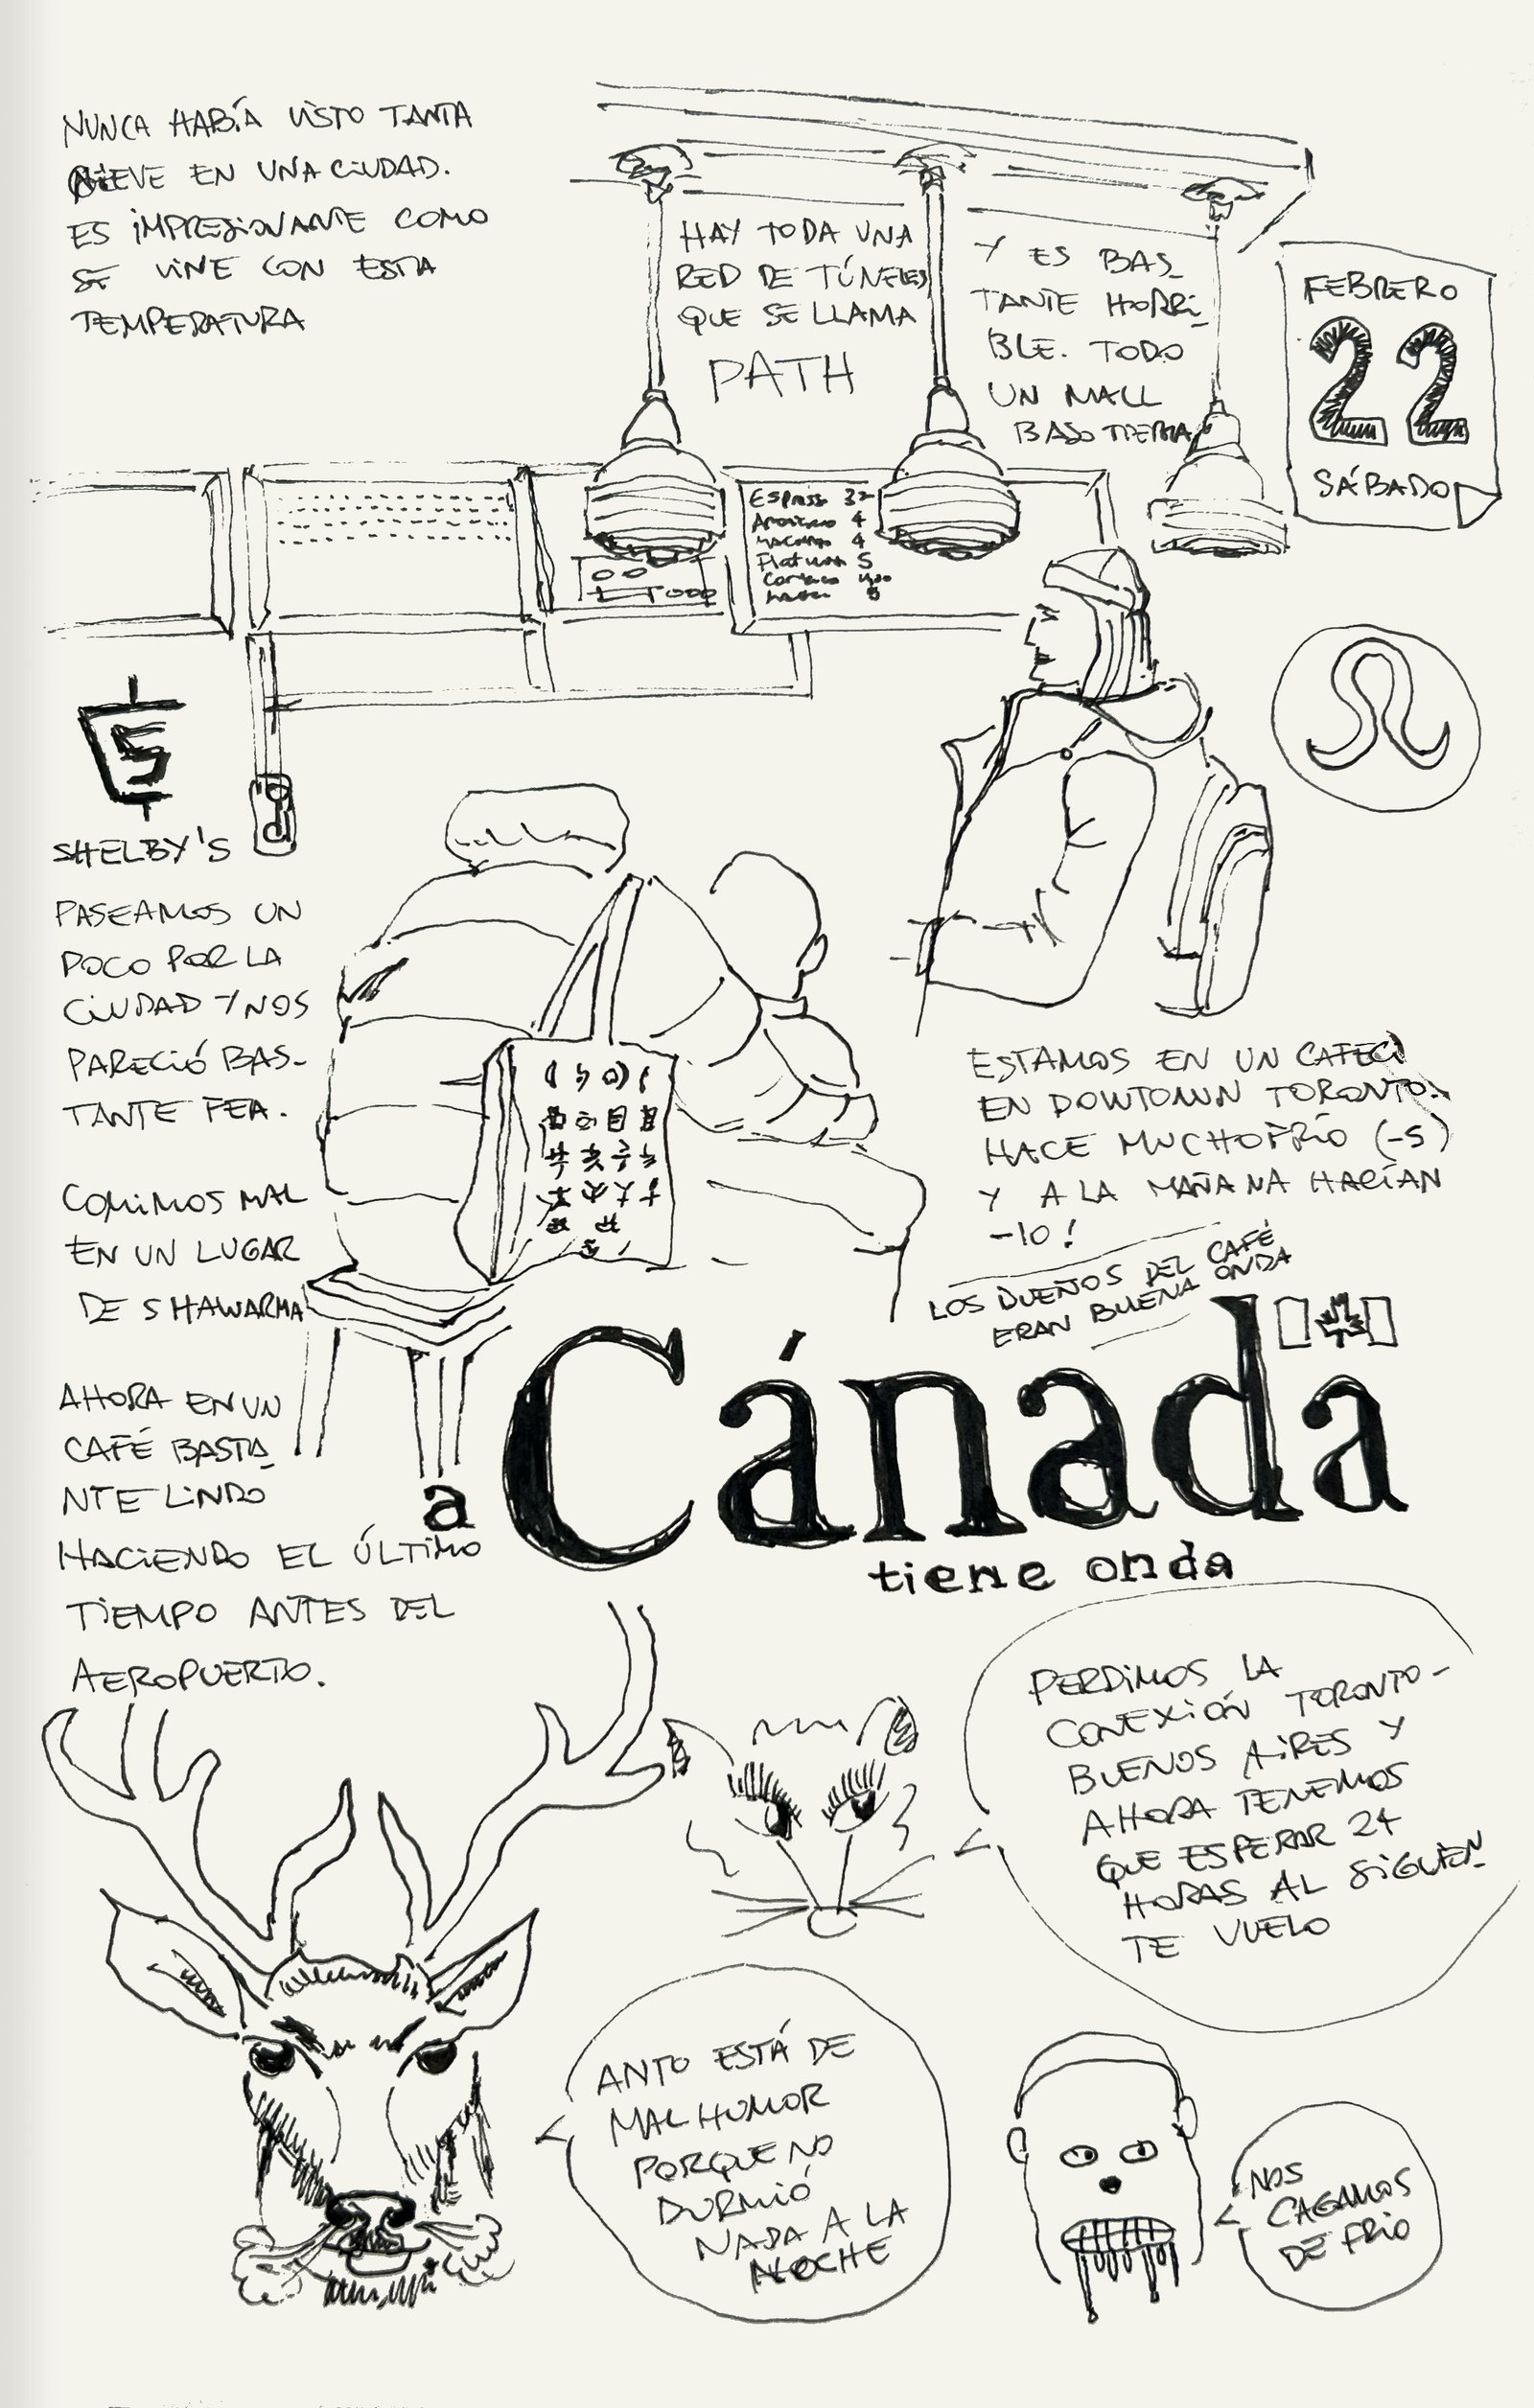 NUNCA HABÍA VISTO TANTA
NIEVE EN UNA CIUDAD.
ES IMPRESIONANTE COMO
SE VIVE CON ESTA
TEMPERATURA
HAY TODA UNA
RED DE TÚNELES
QUE SE LLAMA
PATH
Y ES BAS-
TANTE HORRI-
BLE. TODO
UN MALL
BAJO TIERRA
FEBRERO
22
SÁBADO
Espresso
4
4
Flat 5
5
S
SHELBY'S
PASEAMOS UN
POCO POR LA
CIUDAD Y NOS
PARECIÓ BAS-
TANTE FEA.
COMIMOS MAL
EN UN LUGAR
DE SHAWARMA
AHORA EN UN
CAFÉ BASTA-
NTE LINDO
HACIENDO EL ÚLTIMO
TIEMPO ANTES DEL
AEROPUERTO.
ESTAMOS EN UN CAFECI
EN DOWTOWN TORONTO.
HACE MUCHO FRÍO (-5)
Y A LA MAÑANA HACÍAN
-10!
LOS DUEÑOS DEL CAFÉ
ERAN BUENA ONDA
a Cánada
tiene onda
PERDIMOS LA
CONEXIÓN TORONTO-
BUENOS AIRES Y
AHORA TENEMOS
QUE ESPERAR 24
HORAS AL SIGUIEN-
TE VUELO
ANTO ESTÁ DE
MAL HUMOR
PORQUE NO
DURMIÓ
NADA A LA
NOCHE
NOS
CAGAMOS
DE FRIO